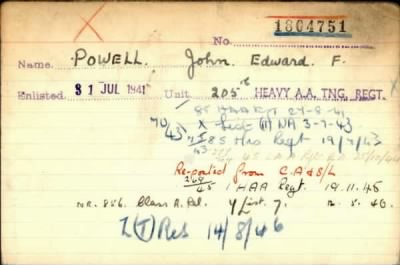 No. 1804751
Name. POWELL. John Edward F.
Enlisted. 31 JUL 1941 Unit 205th HEAVY A.A. TNG. REGT.
85 HAA Regt 27-8-41
X List (ii) NA 3-7-43
85 HAA Regt 19/7/43
Re-posted from C.A & S/L
1 HAA Regt. 19.11.45
NR. 886. Class A. Rel. Y List. 7. 2. 5. 46.
Z(T) Res 14/8/46